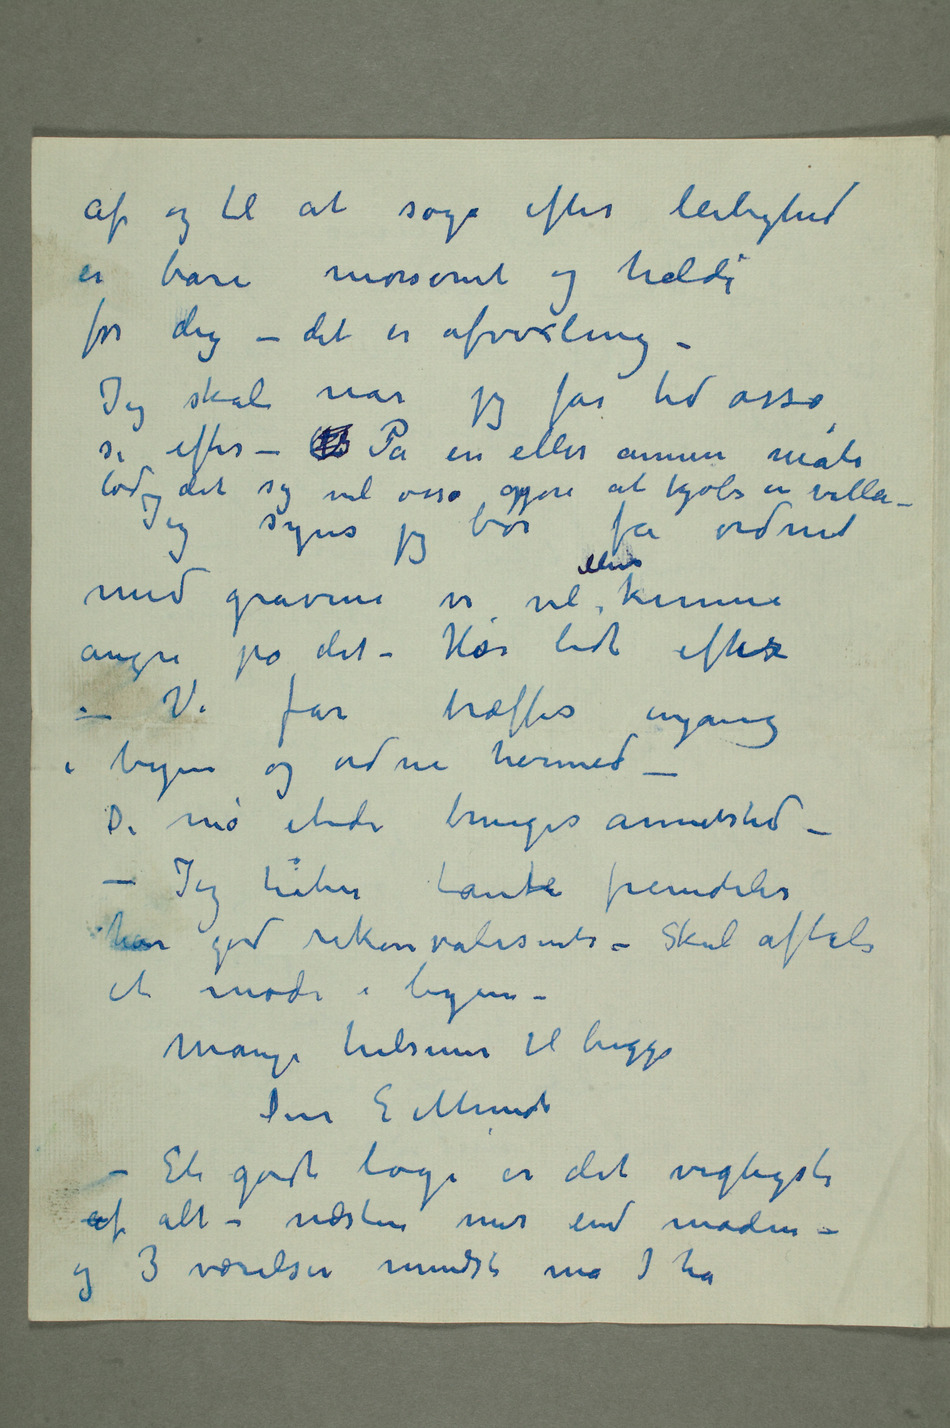 af og til at søge efter leilighed
er bare morsomt og heldi
for dig – det er afvexling –
Jeg skal når jeg får tid osså
se efter – På en eller annen måte
lod det sig vel osså gjøre at kjøbe en villa –
Jeg synes jeg bør få ordnet
ellers
med gravene vi vil kunne
angre på det – Hør lidt efter
– Vi får træffes engang
i byen og ordne hermed –
De må etede bruges annetsted –
– Jeg håber tante fremdeles
har god rekonvalesents – Skal aftale
et møde i byen –
Mange hilsener til begge
Din E Munch
– Et godt logi er det vigtigste
af alt – næsten mer end maden –
og 3 værelser mindst må I ha